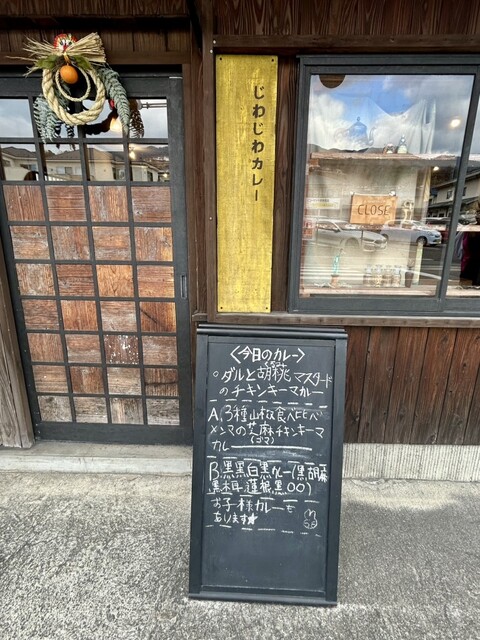 じわじわカレー
CLOSE
〈今日のカレー〉
○ダルと胡桃マスタード
くるみ
のチキンキーマカレー
A,3種山椒食べ比べ
メンマの芝麻チキンキーマ
(ゴマ)
カレー
B,黒黒白黒カレー(黒胡麻
黒木耳蓮根黒〇〇)
お子様カレーも
あります★